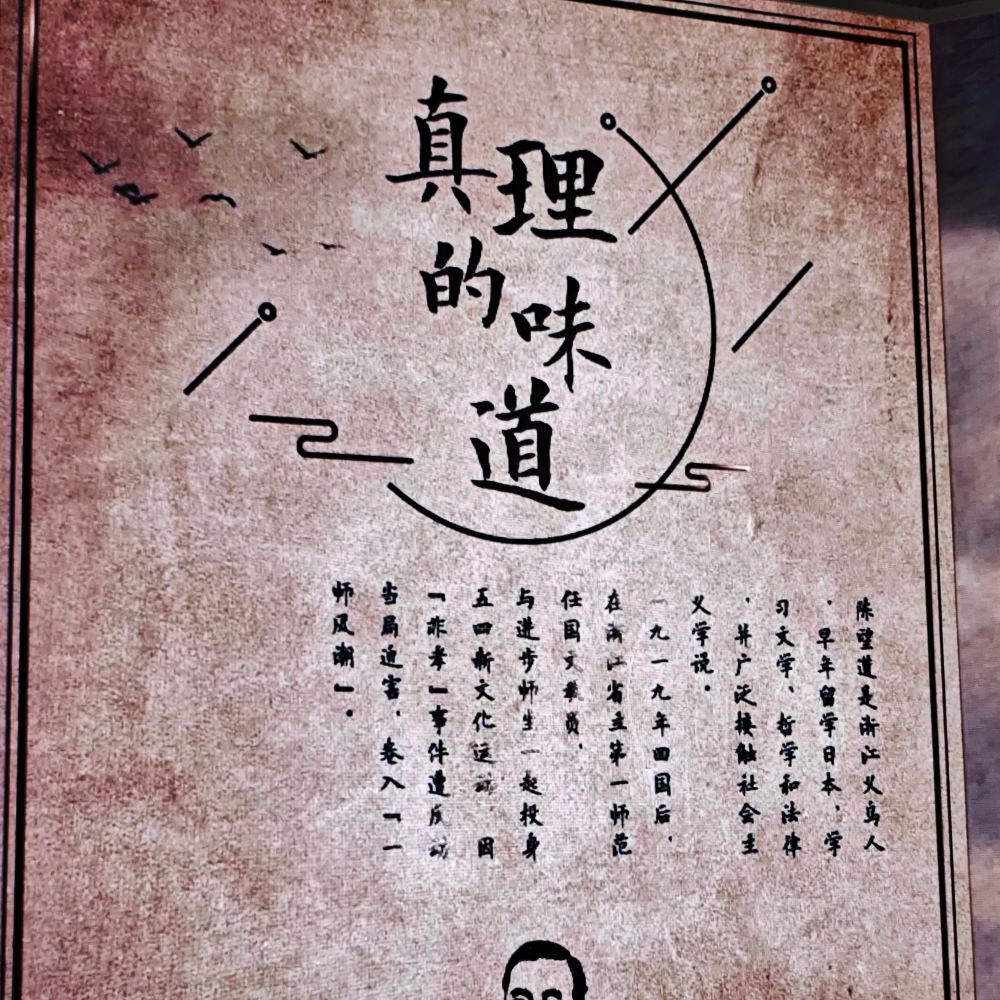 真理的味道
陈望道是浙江义乌人
，早年留学日本，学
习文学、哲学和法律
，并广泛接触社会主
义学说。
一九一九年回国后，
在浙江省立第一师范
任国文教员，
与进步师生一起投身
五四新文化运动，因
「非孝」事件遭反动
当局迫害，卷入「一
师风潮」。